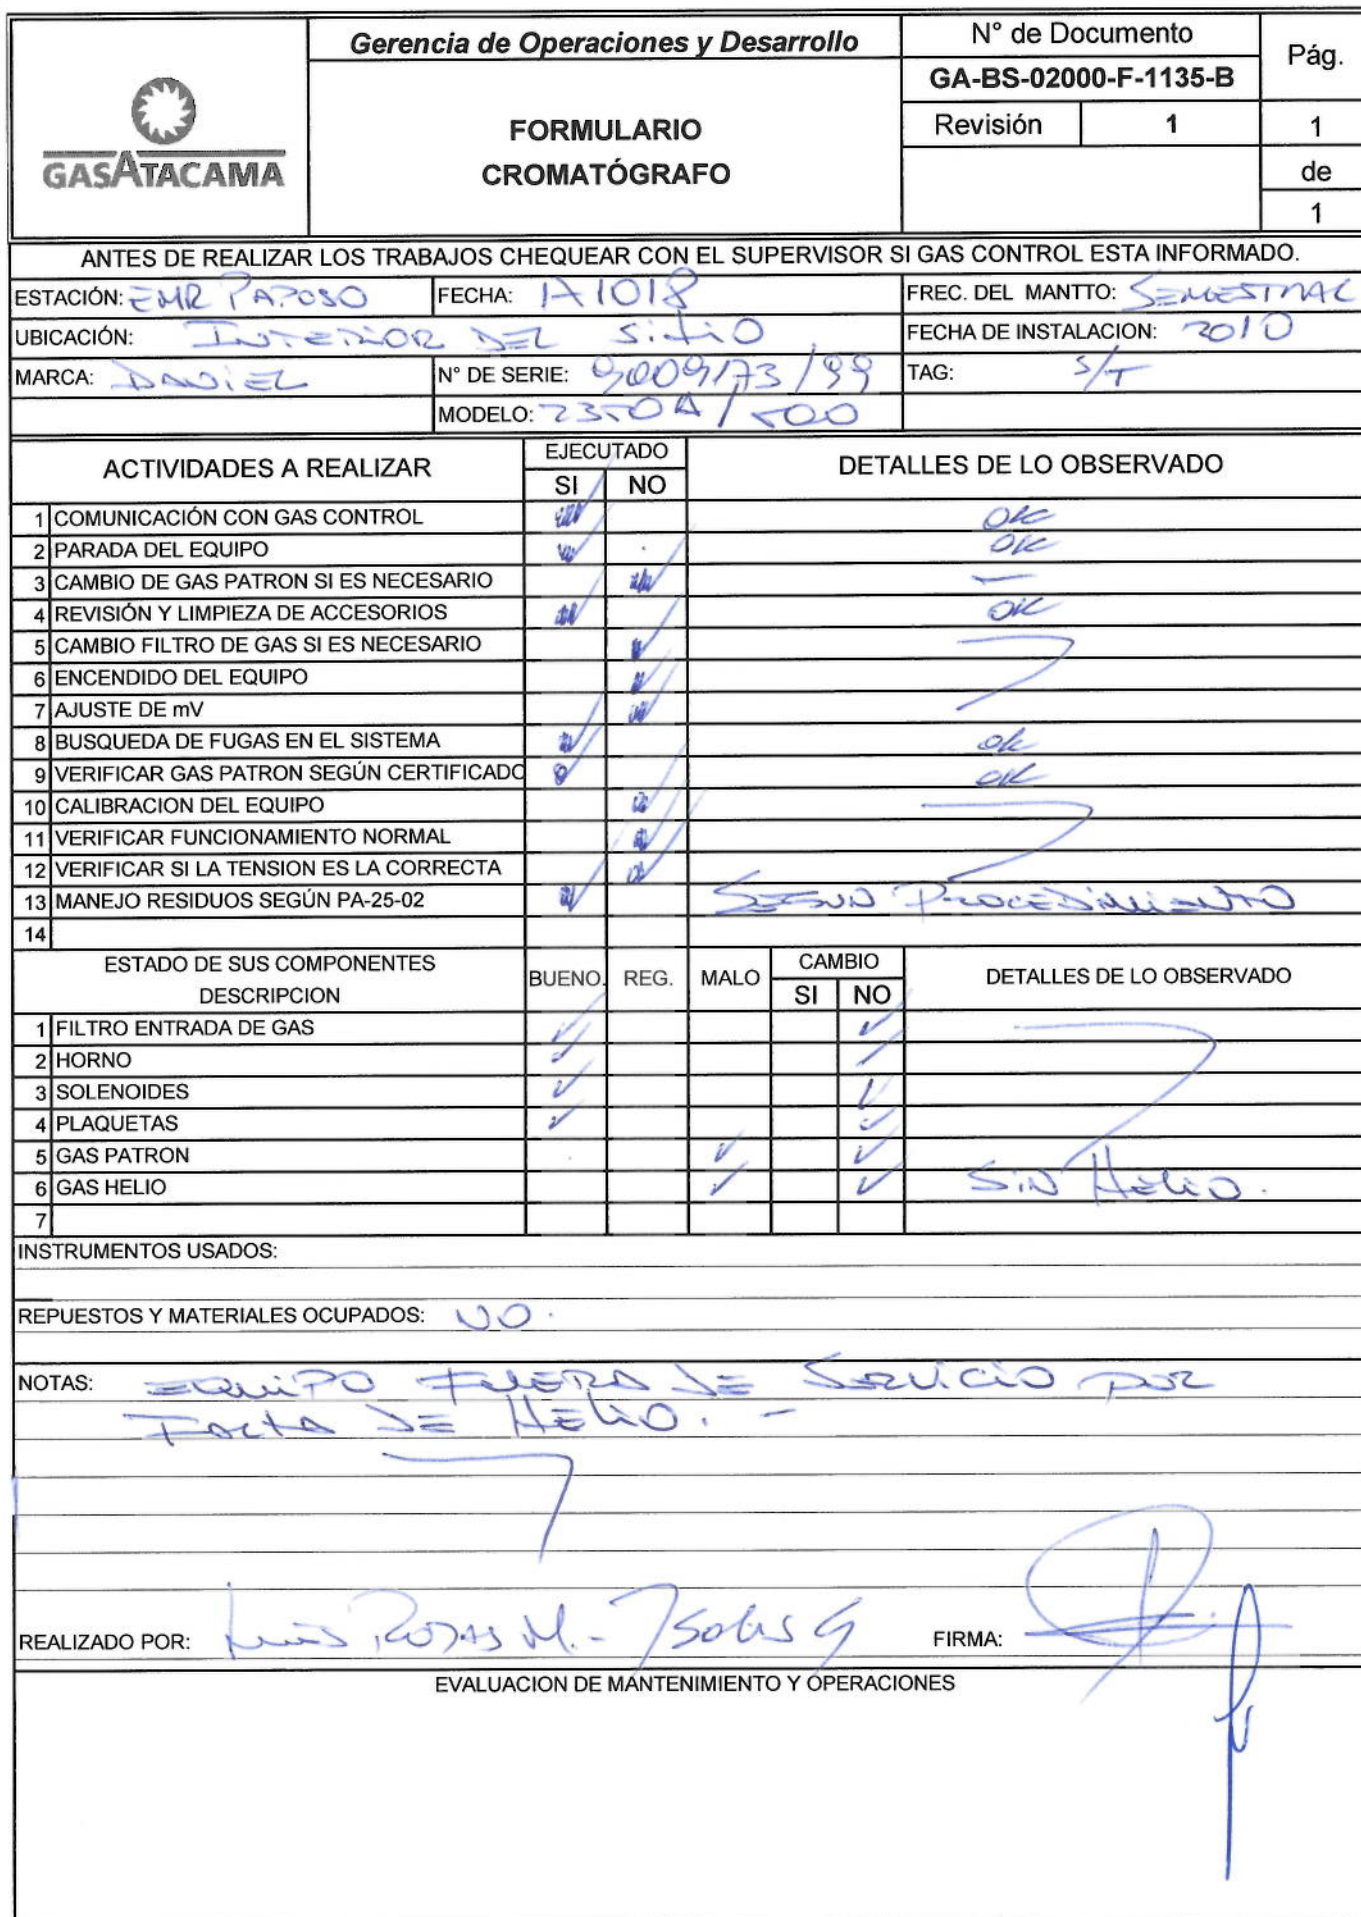 Gerencia de Operaciones y Desarrollo
N° de Documento
Pág.
GA-BS-02000-F-1135-B
GASATACAMA
FORMULARIO
CROMATÓGRAFO
Revisión 1
1
de
1
ANTES DE REALIZAR LOS TRABAJOS CHEQUEAR CON EL SUPERVISOR SI GAS CONTROL ESTA INFORMADO.
ESTACIÓN: EMR PAPOSO FECHA: FREC. DEL MANTTO: SEMESTRAL
UBICACIÓN: INTERIOR DEL SITIO FECHA DE INSTALACION: 2010
MARCA: DANIEL N° DE SERIE: 9009173/99 TAG: S/T
MODELO: 2350A/500
ACTIVIDADES A REALIZAR EJECUTADO DETALLES DE LO OBSERVADO
SI NO
1 COMUNICACIÓN CON GAS CONTROL OK
2 PARADA DEL EQUIPO OK
3 CAMBIO DE GAS PATRON SI ES NECESARIO —
4 REVISIÓN Y LIMPIEZA DE ACCESORIOS OK
5 CAMBIO FILTRO DE GAS SI ES NECESARIO
6 ENCENDIDO DEL EQUIPO
7 AJUSTE DE mV
8 BUSQUEDA DE FUGAS EN EL SISTEMA ok
9 VERIFICAR GAS PATRON SEGÚN CERTIFICADO OK
10 CALIBRACION DEL EQUIPO
11 VERIFICAR FUNCIONAMIENTO NORMAL
12 VERIFICAR SI LA TENSION ES LA CORRECTA
13 MANEJO RESIDUOS SEGÚN PA-25-02 SEGUN PROCEDIMIENTO
14
ESTADO DE SUS COMPONENTES
DESCRIPCION
BUENO. REG. MALO CAMBIO DETALLES DE LO OBSERVADO
SI NO
1 FILTRO ENTRADA DE GAS
2 HORNO
3 SOLENOIDES
4 PLAQUETAS
5 GAS PATRON
6 GAS HELIO SIN HELIO.
7
INSTRUMENTOS USADOS:
REPUESTOS Y MATERIALES OCUPADOS: NO.
NOTAS: EQUIPO FUERA DE SERVICIO POR
FALTA DE HELIO. -
REALIZADO POR: LUIS ROJAS M. - FIRMA:
EVALUACION DE MANTENIMIENTO Y OPERACIONES